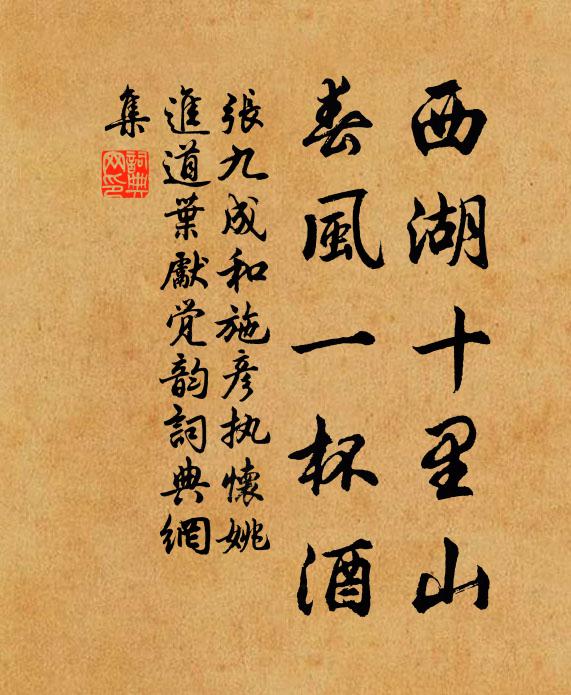 西湖十里山
春風一杯酒
張九成和施彦执懷姚
進道葉獻覚韵詞典網
集
詞典
网印